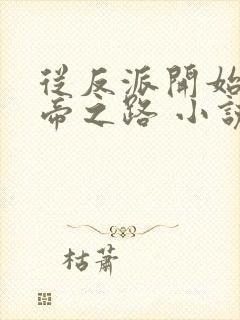 從反派開始
帝之路 小說
枯蕭